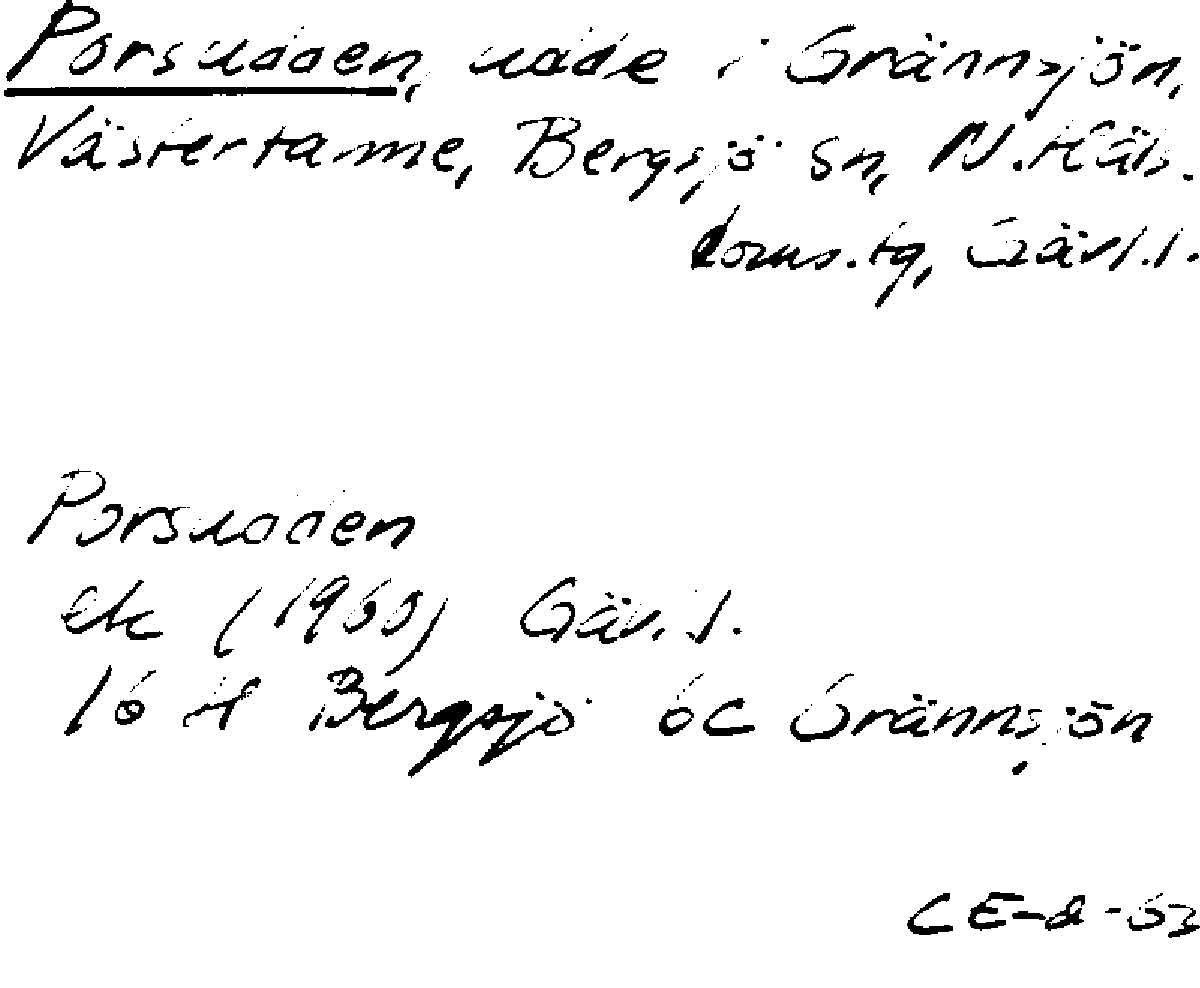 Porsudden, udde i Grännsjön,
Västertanne, Bergsjö sn, N. Häls.
doms.tg, Gävl.l.
Porsudden
ek (1960) Gäv.l.
16 H Bergsjö 6c Grännsjön